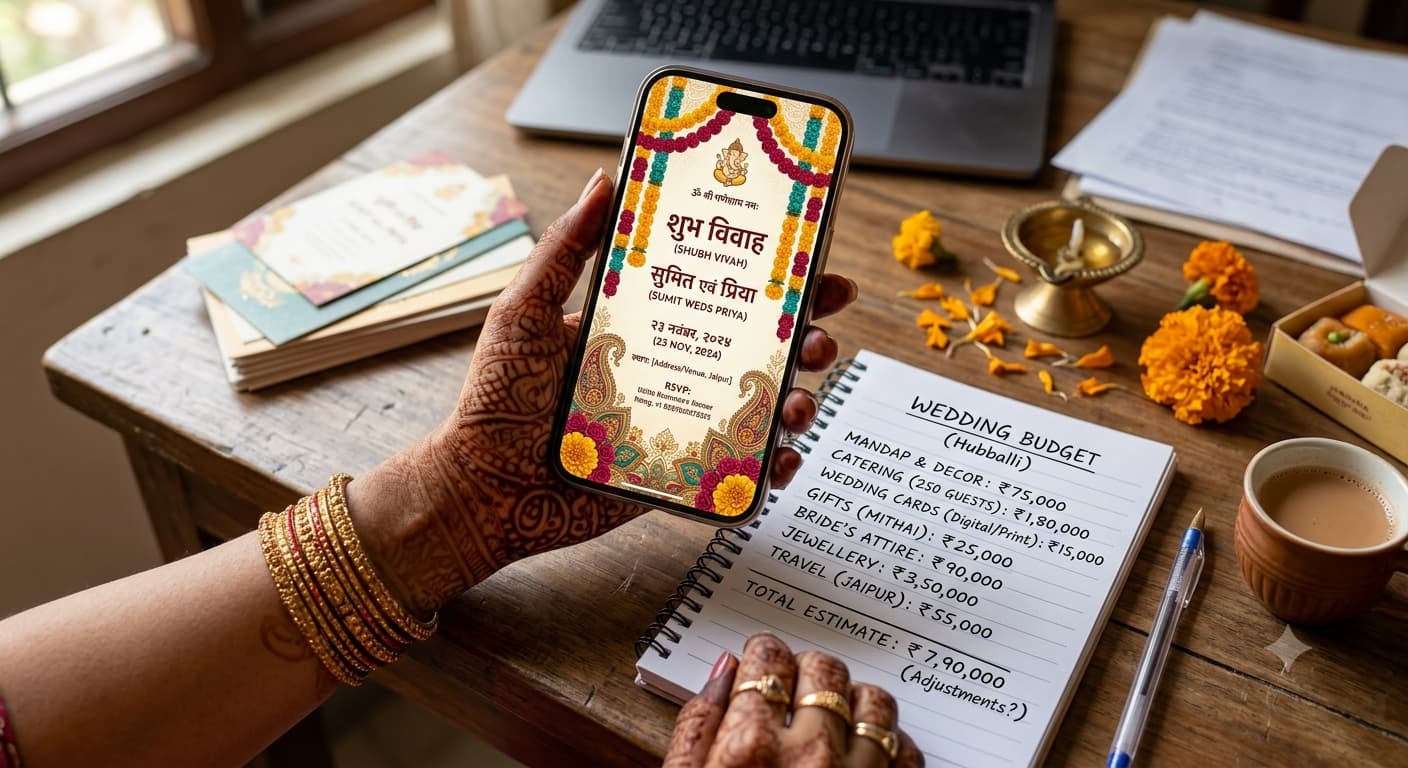 ॐ श्री गणेशाय नमः
शुभ विवाह
(SHUBH VIVAH)
सुमित एवं प्रिया
(SUMIT WEDS PRIYA)
२३ नवंबर, २०२४
(23 NOV, 2024)
[Address/Venue, Jaipur]
RSVP:
WEDDING BUDGET
(Hubballi)
MANDAP & DECOR: ₹75,000
CATERING (250 GUESTS): ₹1,80,000
WEDDING CARDS (Digital/Print): ₹15,000
GIFTS (MITHAI): ₹25,000
BRIDE'S ATTIRE: ₹90,000
JEWELLERY: ₹3,50,000
TRAVEL (JAIPUR): ₹55,000
TOTAL ESTIMATE: ₹7,90,000
(Adjustments?)